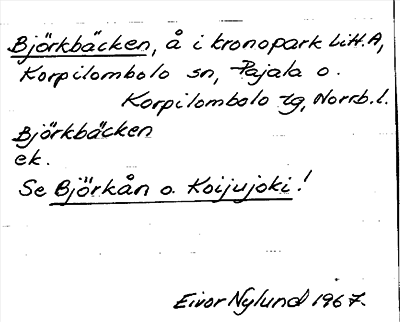 Björkbäcken, å i kronopark Litt. A,
Korpilombolo sn, Pajala o.
Korpilombolo tg, Norrb. l.
Björkbäcken
ek.
Se Björkån o. Koijujoki!
Eivor Nylund 1967.